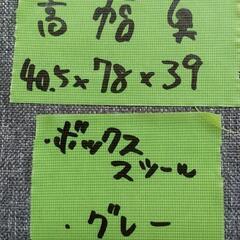 高 幅 奥
40.5×78×39
・ボックス
スツール
・グレー